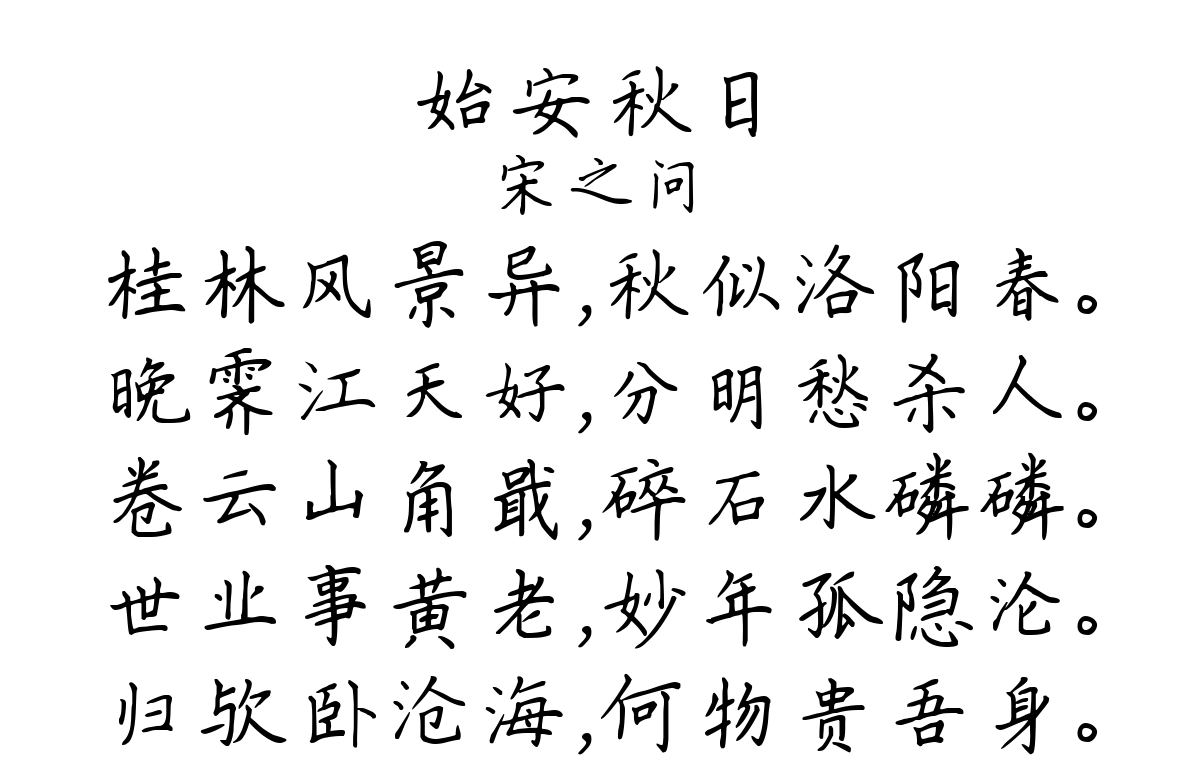 始安秋日
宋之问
桂林风景异,秋似洛阳春。
晚霁江天好,分明愁杀人。
卷云山角戢,碎石水磷磷。
世业事黄老,妙年孤隐沦。
归欤卧沧海,何物贵吾身。